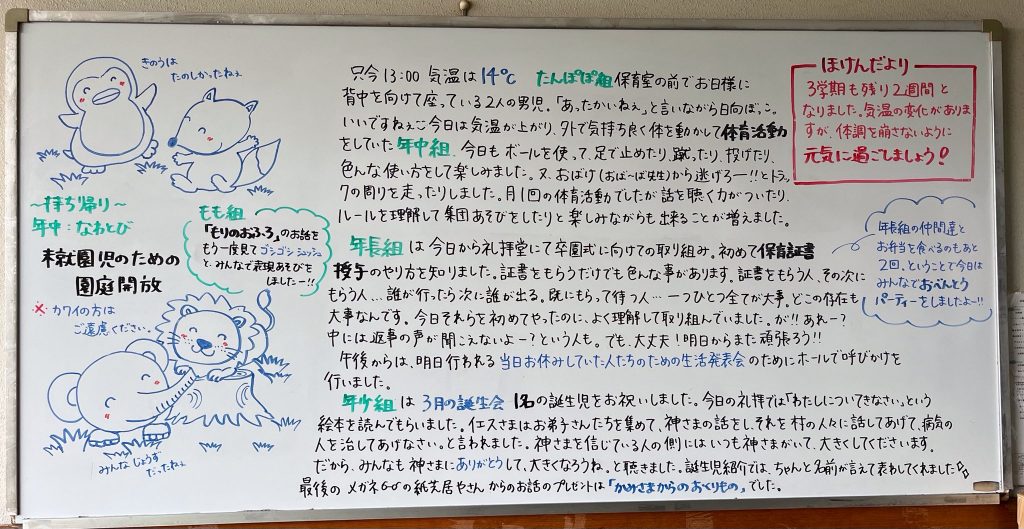 きのうは
たのしかったねぇ
〜持ち帰り〜
年中：なわとび
もも組
「もりのおふろ」のお話を
もう一度見てゴシゴシシュッシュ
と、みんなで表現あそびを
しましたー!!
未就園児のための
園庭開放
※カワイの方は
ご遠慮ください。
みんなじょうず
だったねぇ
只今13:00 気温は14℃ たんぽぽ組保育室の前でお日様に
背中を向けて座っている2人の男児。「あったかいねぇ」と言いながら日向ぼっこ。
いいですねぇ♡今日は気温が上がり、外で気持ち良く体を動かして体育活動
をしていた年中組。今日もボールを使って、足で止めたり、蹴ったり、投げたり、
色んな使い方をして楽しみました。又、おばけ(おばーば先生)から逃げろー!!とトラッ
クの周りを走ったりしました。月1回の体育活動でしたが話を聴く力がついたり、
ルールを理解して集団あそびをしたりと楽しみながらも出来ることが増えました。
年長組は今日から礼拝堂にて卒園式に向けての取り組み。初めて保育証書
授与のやり方を知りました。証書をもらうだけでも色んな事があります。証書をもらう人、その次に
もらう人…誰が行ったら次に誰が出る。既にもらって待つ人…一つひとつ全てが大事。どこの存在も
大事なんです。今日それらを初めてやったのに、よく理解して取り組んでいました。が!!あれー？
中には返事の声が聞こえないよー？という人も。でも、大丈夫！明日からまた頑張ろう!!
午後からは、明日行われる当日お休みしていた人たちのための生活発表会のためにホールで呼びかけを
行いました。
年少組は3月の誕生会 1名の誕生児をお祝いしました。今日の礼拝では「わたしについてきなさい」という
絵本を読んでもらいました。イエスさまはお弟子さんたちを集めて、神さまの話をし、それを村の人々に話してあげて、病気の
人を治してあげなさい。と言われました。神さまを信じている人の側にはいつも神さまがいて、大きくしてくださいます。
だから、みんなも神さまにありがとうして、大きくなろうね。と聴きました。誕生児紹介では、ちゃんと名前が言えて表わしてくれました
最後のメガネの紙芝居やさんからのお話のプレゼントは「かみさまからのおくりもの」でした。
ほけんだより
3学期も残り2週間と
なりました。気温の変化がありま
すが、体調を崩さないように
元気に過ごしましょう！
年長組の仲間達と
お弁当を食べるのもあと
2回、ということで今日は
みんなでおべんとう
パーティーをしましたよー!!